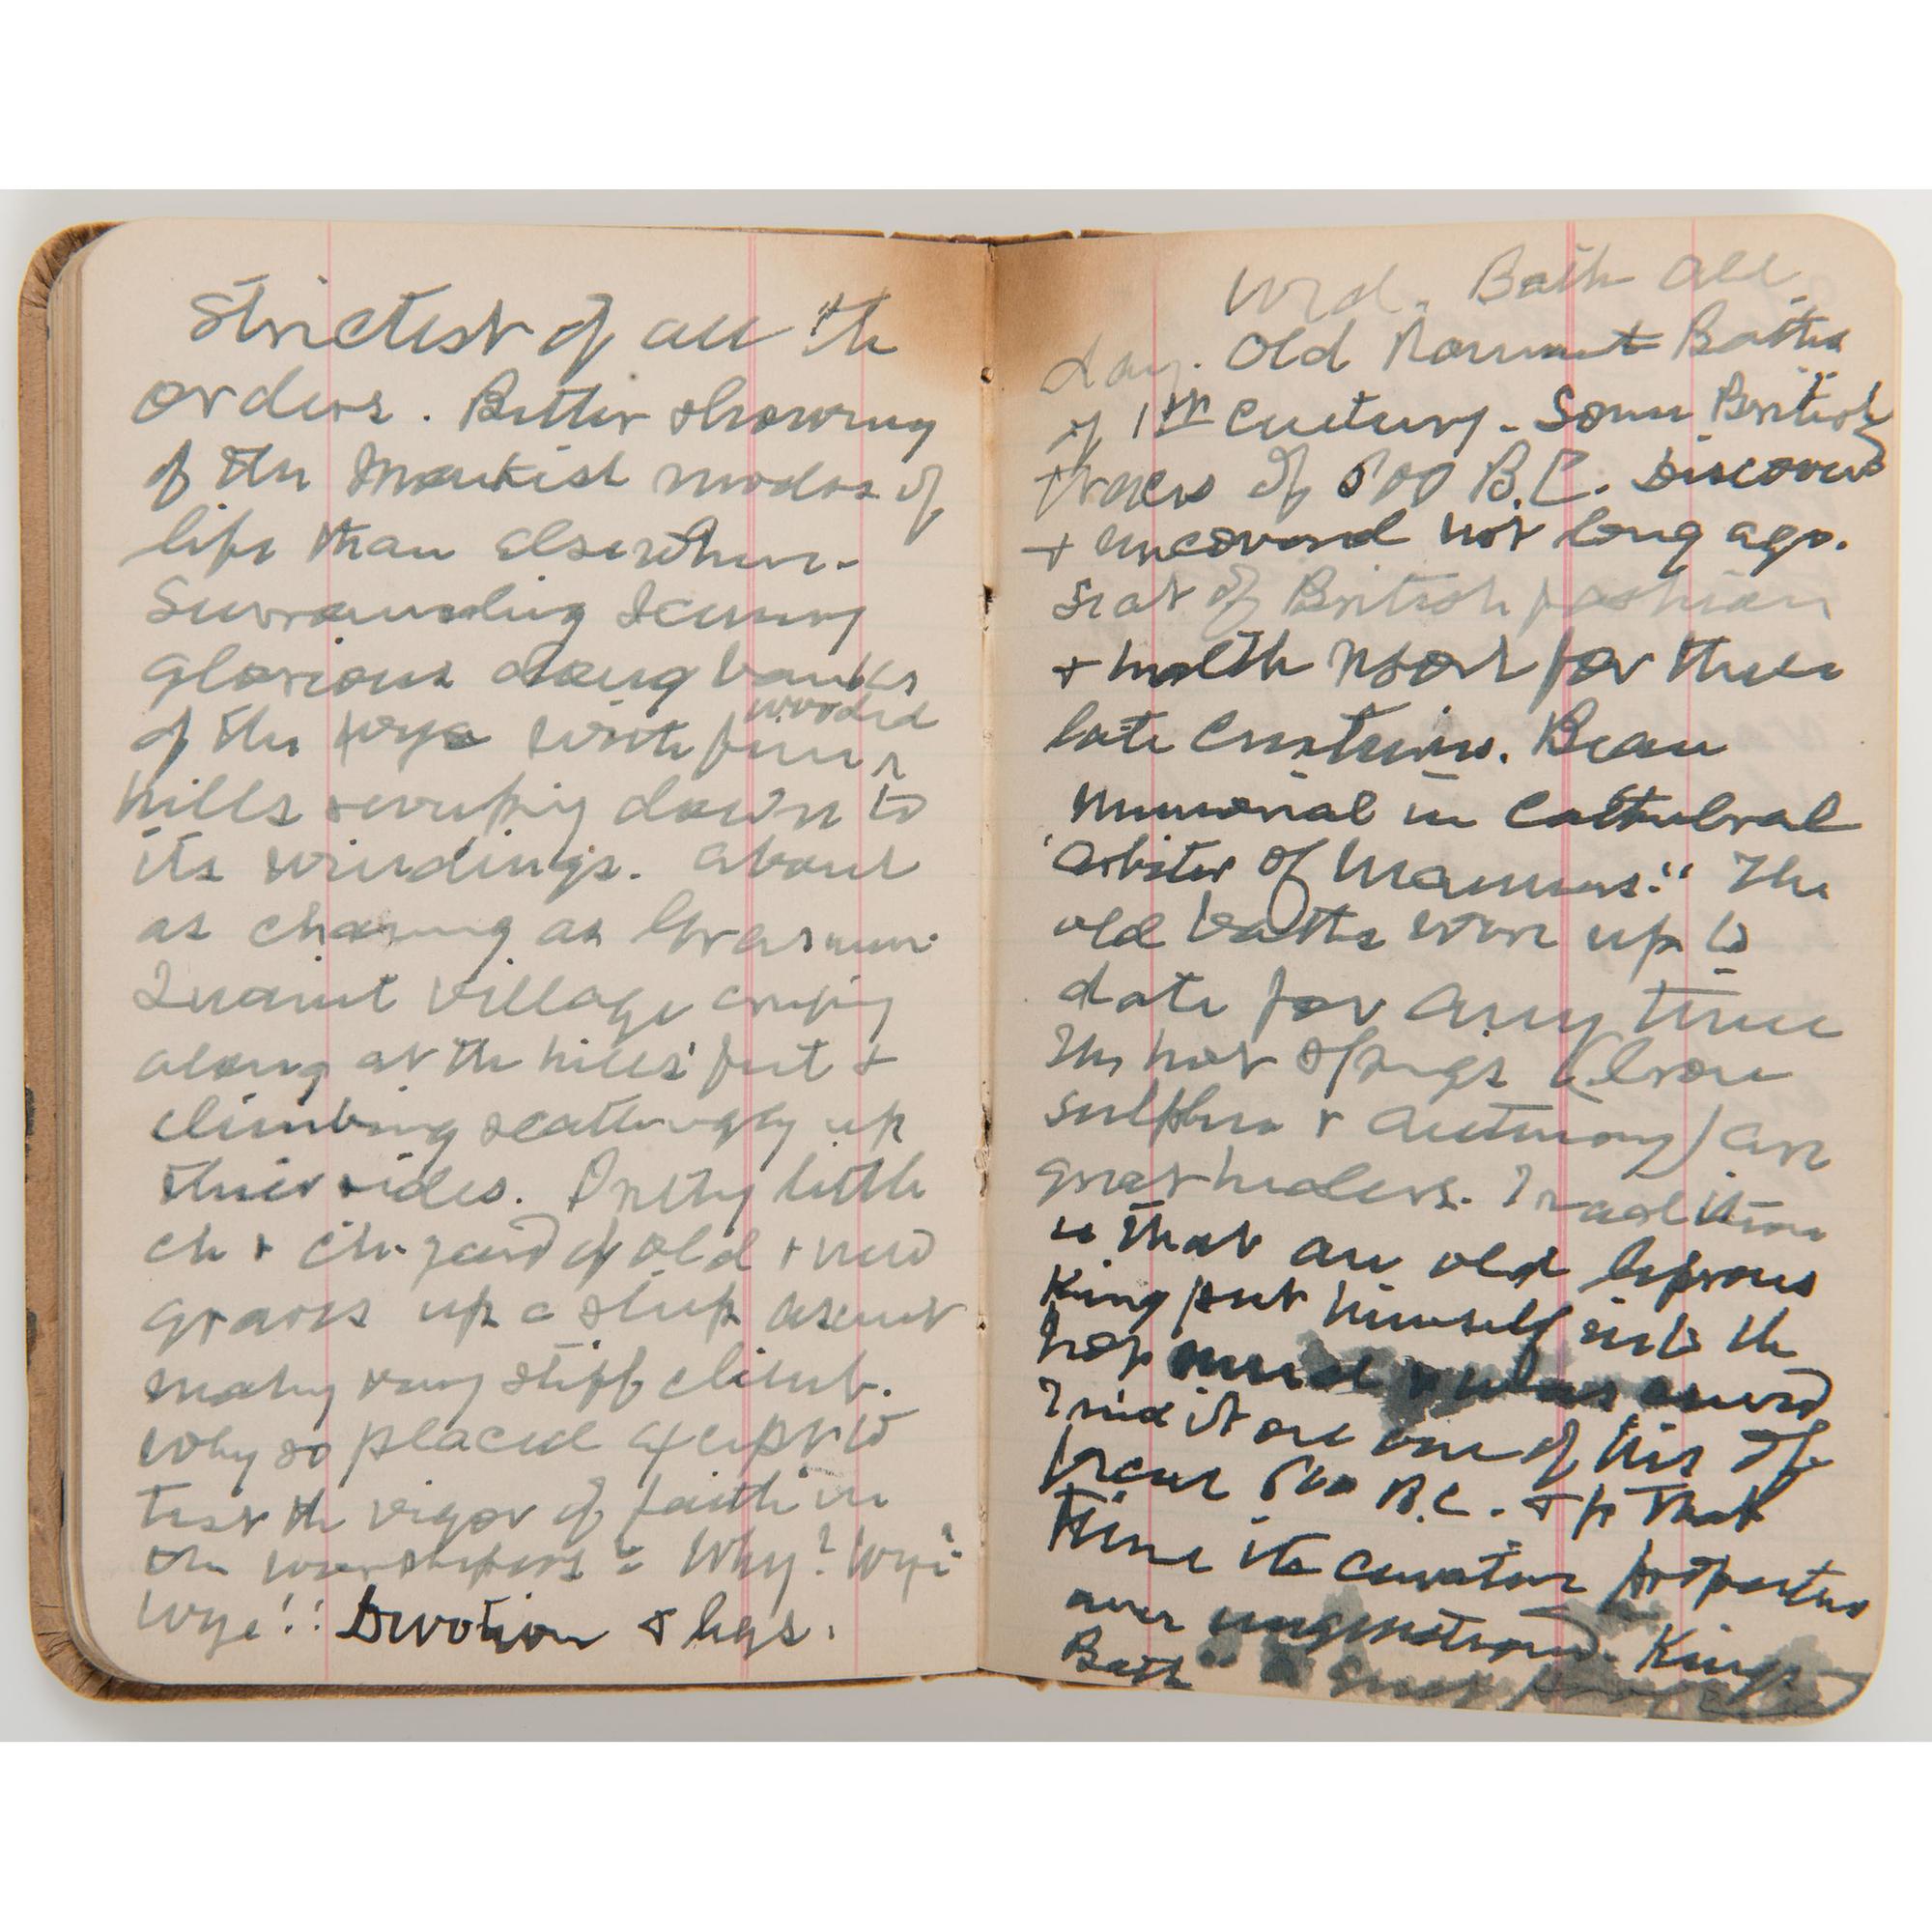 Strictest of all the
orders. Better showing
of the Monkish modes of
life than elsewhere.
Surrounding scenery
glorious along banks
of the Wye with fine wooded
hills sweeping down to
its windings. About
as charming as Grasmere.
Quaint village creeping
along at the hills' feet +
climbing scatteringly up
their sides. Pretty little
ch + ch. yard of old + new
graves up a steep ascent
making very stiff climb.
Why so placed except to
test the vigor of faith in
the worshipers? Why? Wye?
Wye!! Devotion & legs.
Wed. Bath all
day. Old Roman Baths
of 1st century. Some British
traces of 500 B.C. Discovered
+ uncovered not long ago.
Seat of British fashion
+ health resort for three
late centuries. Beau
Memorial in Cathedral
"Arbiter of Manners." The
old baths were up to
date for any time
The hot springs (Iron
sulphur + antimony) are
great healers. Tradition
is that an old leprous
King put himself into the
hot mud + was cured
Tried it on one of his
500 B.C. + fr that
time its curative properties
over unquestioned. Kings
Bath